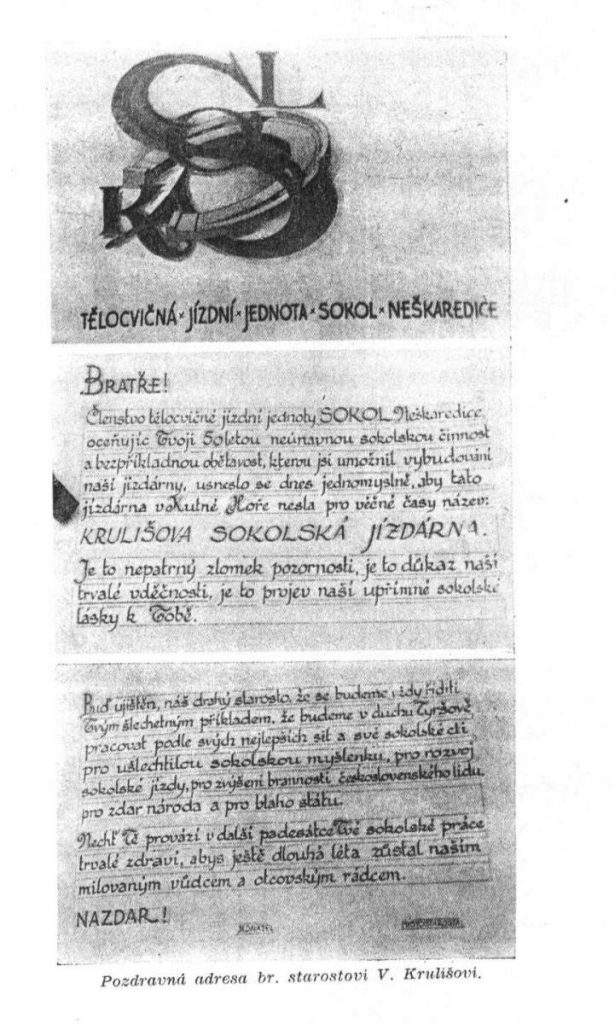 SOKOL
TĚLOCVIČNÁ · JÍZDNÍ · JEDNOTA · SOKOL · NEŠKAREDICE
BRATŘE!
Členstvo tělocvičné jízdní jednoty SOKOL Neškaredice,
oceňujíc Tvoji 50letou neúnavnou sokolskou činnost
a bezpříkladnou obětavost, kterou jsi umožnil vybudování
naší jízdárny, usneslo se dnes jednomyslně, aby tato
jízdárna v Kutné Hoře nesla pro věčné časy název:
KRULIŠOVA SOKOLSKÁ JÍZDÁRNA.
Je to nepatrný zlomek pozornosti, je to důkaz naší
trvalé vděčnosti, je to projev naší upřímné sokolské
lásky k Tobě.
Buď ujištěn, náš drahý starosto, že se budeme vždy říditi
Tvým šlechetným příkladem, že budeme v duchu Tyršově
pracovat podle svých nejlepších sil a své sokolské cti
pro ušlechtilou sokolskou myšlenku, pro rozvoj
sokolské jízdy, pro zvýšení brannosti československého lidu,
pro zdar národa a pro blaho státu.
Nechť Tě provází v další padesátce Tvé sokolské práce
trvalé zdraví, abys ještě dlouhá léta zůstal naším
milovaným vůdcem a otcovským rádcem.
NAZDAR!
JEDNATEL
Pozdravná adresa br. starostovi V. Krulišovi.